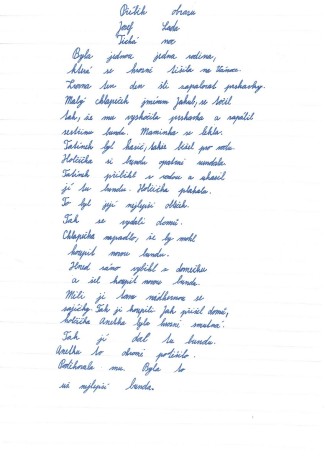 Příběh obrazu
Josef Lada
Tichá noc
Byla jednou jedna rodina,
která se hrozně těšila na Vánoce.
Zrovna ten den šli zapalovat prskavky.
Malý chlapeček jménem Jakub, se točil
tak, že mu vyskočila prskavka a zapálil
sestřinu bundu. Maminka se lekla.
Tatínek byl hasič, takže běžel pro vodu.
Holčička si bundu opatrně sundala.
Tatínek přiběhl s vodou a uhasil
jí tu bundu. Holčička plakala.
To byl její nejlepší obleček.
Tak se vydali domů.
Chlapečka napadlo, že by mohl
koupit novou bundu.
Hned ráno vyběhl z domečku
a šel koupit novou bundu.
Měli ji tam nádhernou se
zajíčky. Tak ji koupil. Jak přišel domů,
holčička Anežka byla hrozně smutná.
Tak jí dal tu bundu.
Anežku to potěšilo.
Poděkovala mu. Byla to
její nejlepší bunda.